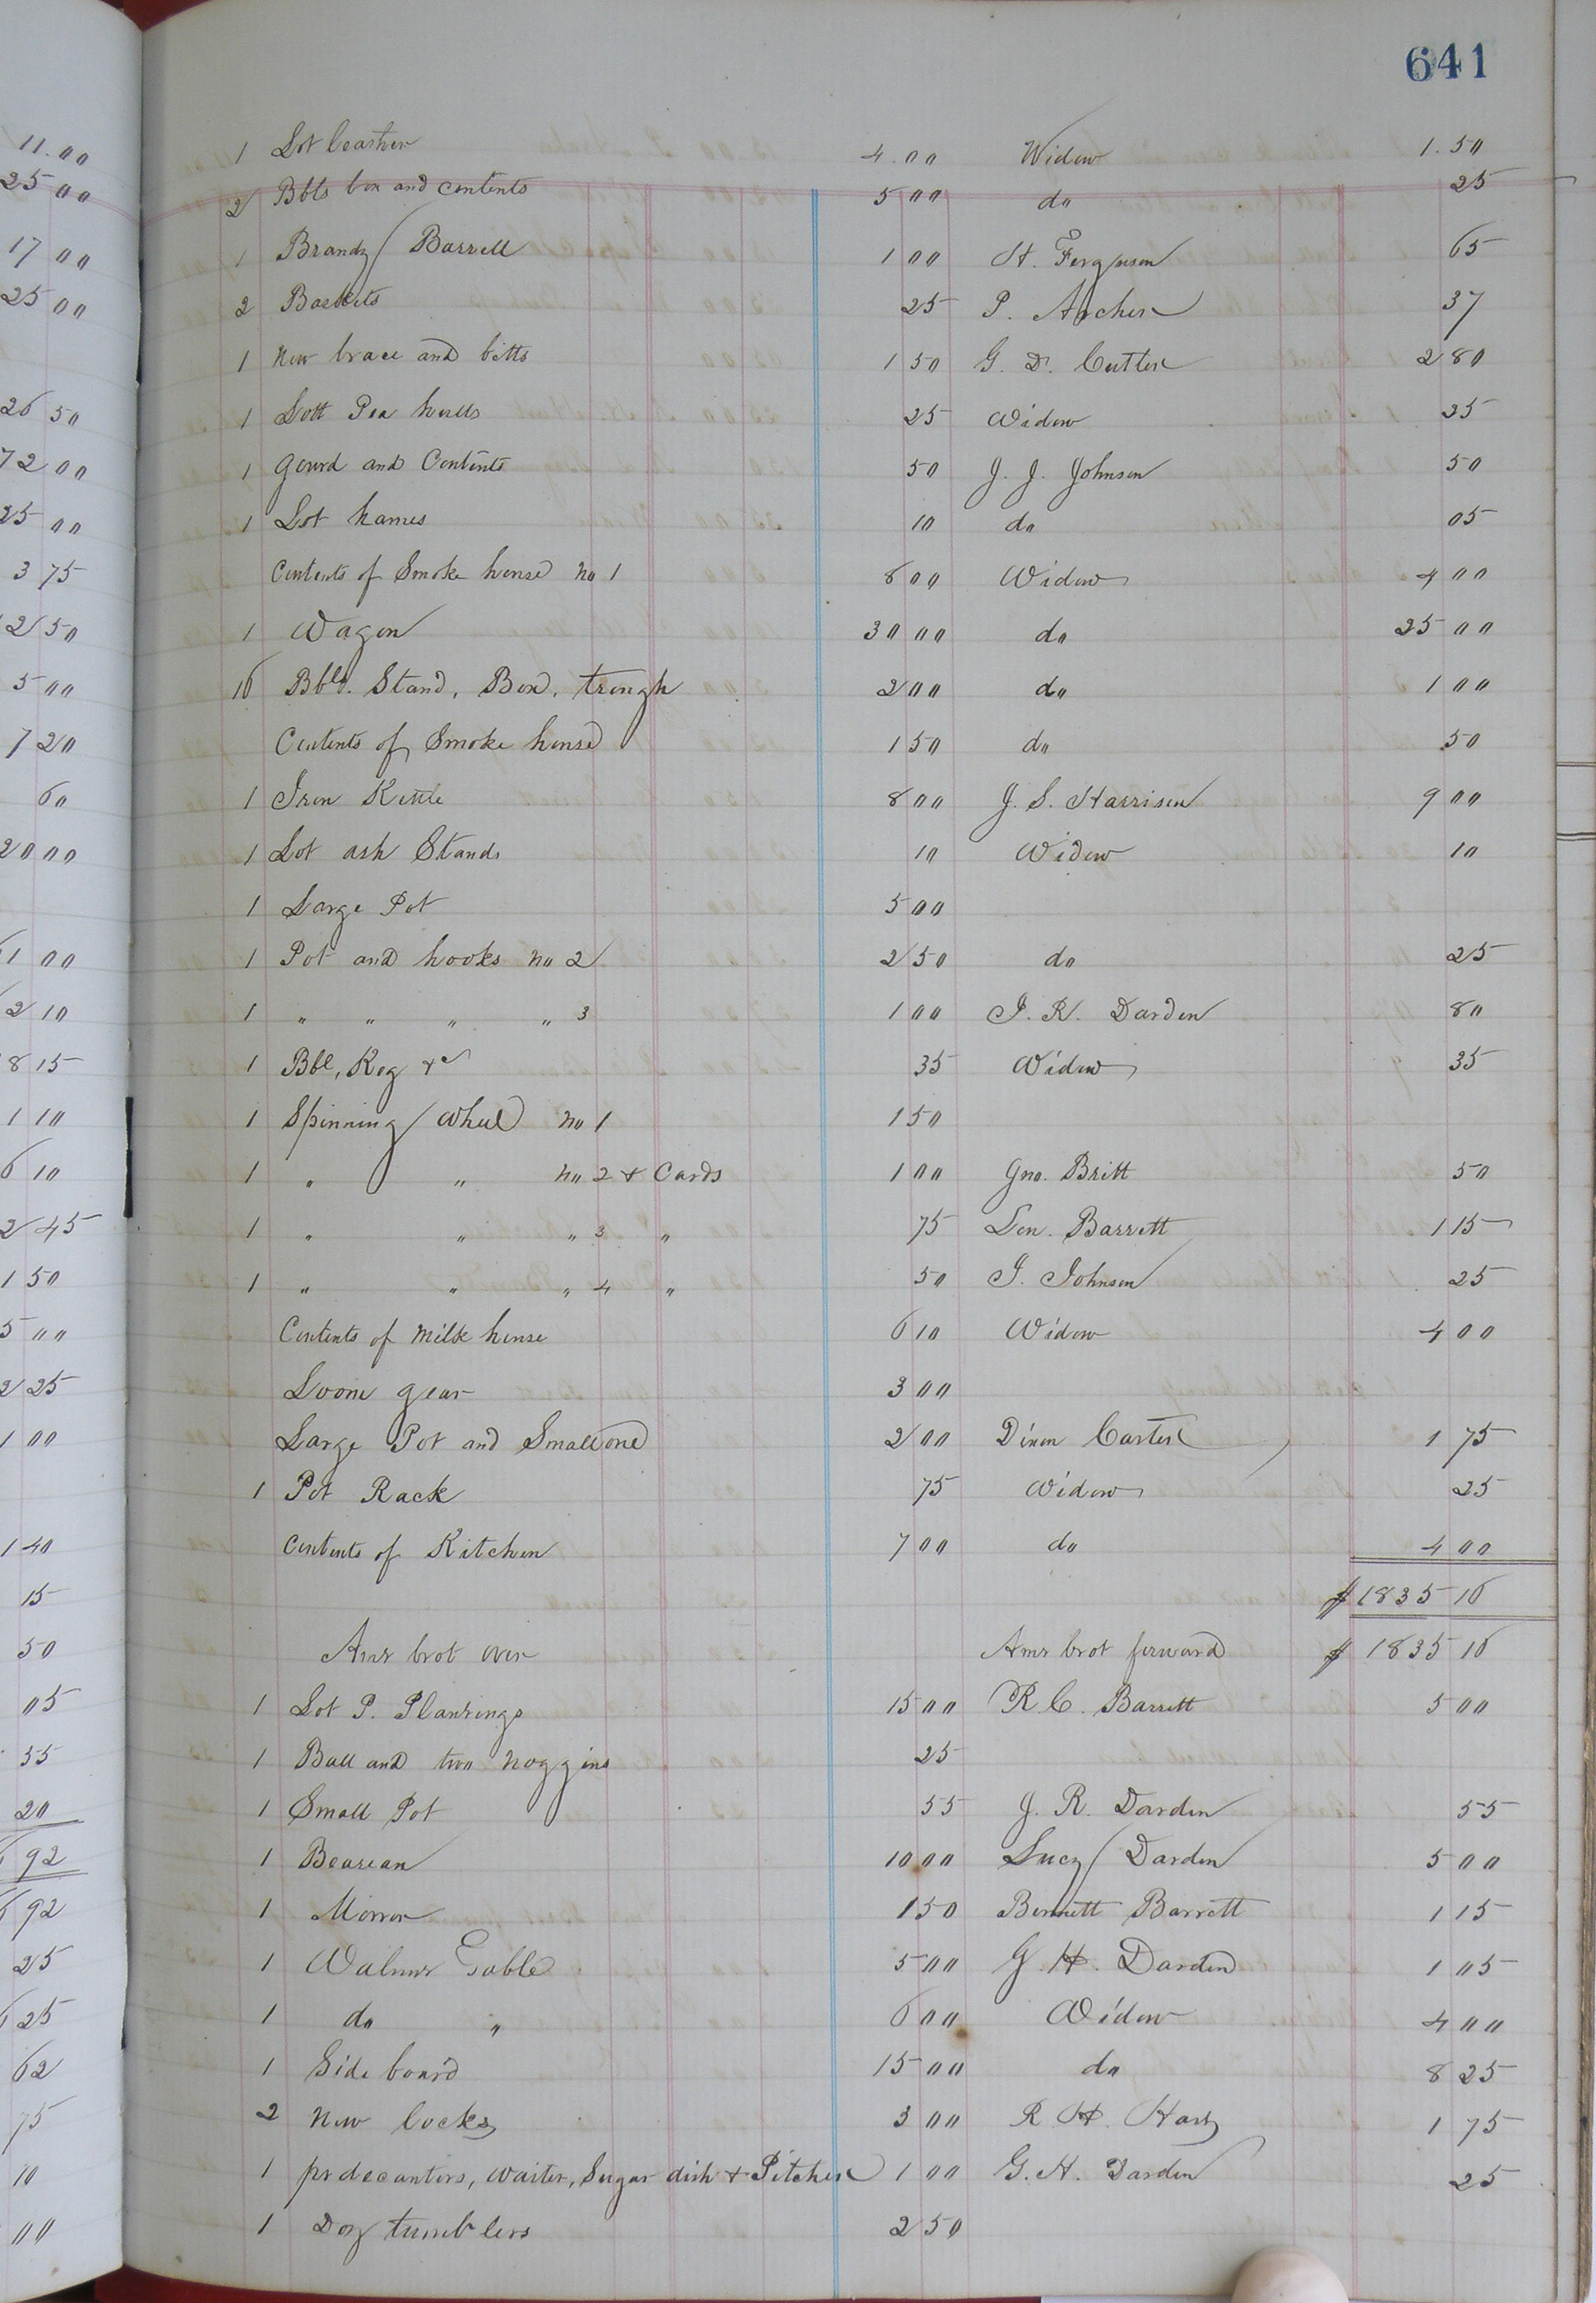 641
1 Lot leather 4.00 Widow 1.50
2 Bbls box and contents 5 00 do 25
1 Brandy Barrell 1 00 H. Ferguson 65
2 Baskets 25 P. Archer 37
1 New brace and bitts 1 50 G. D. Cutler 2 80
1 Lott Pea hulls 25 Widow 25
1 Gourd and Contents 50 J. J. Johnson 50
1 Lot hames 10 do 05
Contents of Smoke house No 1 8 00 Widow 4 00
1 Wagon 30 00 do 25 00
16 Bbls. Stand, Box, trough 2 00 do 1 00
Contents of Smoke house 1 50 do 50
1 Iron Kettle 8 00 J. S. Harrison 9 00
1 Lot ash Stands 10 Widow 10
1 Large Pot 5 00
1 Pot and hooks No 2 2 50 do 25
1 " " " " 3 1 00 J. R. Darden 80
1 Bbl, Keg &c 35 Widow 35
1 Spinning Wheel No 1 1 50
1 " " No 2 & Cards 1 00 Jno. Britt 50
1 " " " 3 " 75 Len. Barrett 1 15
1 " " " 4 " 50 J. Johnson 25
Contents of Milk house 6 10 Widow 4 00
Loom gear 3 00
Large Pot and Small one 2 00 Dixon Carter 1 75
1 Pot Rack 75 Widow 25
Contents of Kitchen 7 00 do 4 00
$ 1835 16
Amt brot over Amt brot forward $ 1835 16
1 Lot P. Plantings 15 00 R. C. Barrett 5 00
1 Ball and two Noggins 25
1 Small Pot 55 J. R. Darden 55
1 Beaurau 10 00 Lucy Darden 5 00
1 Mirror 1 50 Bennett Barrett 1 15
1 Walnut Table 5 00 G. H. Darden 1 05
1 do " 6 00 Widow 4 00
1 Side board 15 00 do 8 25
2 New locks 3 00 R. H. Hart 1 75
1 pr decanters, waiter, Sugar dish & Pitcher 1 00 G. H. Darden 25
1 Doz tumblers 2 50